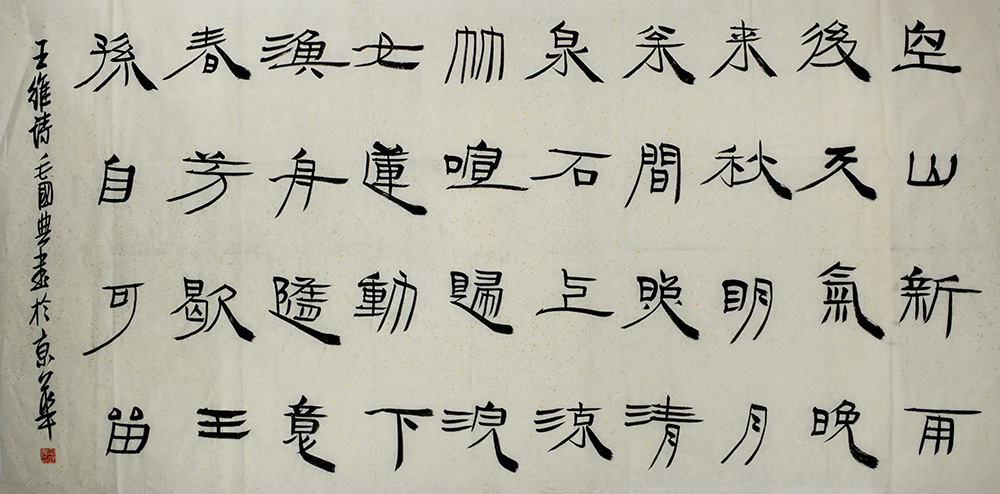 空山新雨
後天氣晚
来秋明月
枀間照清
泉石上流
竹喧歸浣
女蓮動下
漁舟隨意
春芳歇王
孫自可留
王維诗毛國典書於京華